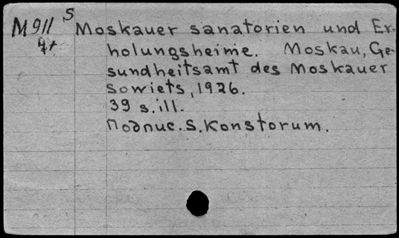 M911 S Moskauer sanatorien und Er-
holungsheime. Moskau, Ge-
sundheitsamt des Moskauer
Sowiets, 1926.
39 s. ill.
Подпис. S. Konstorum.